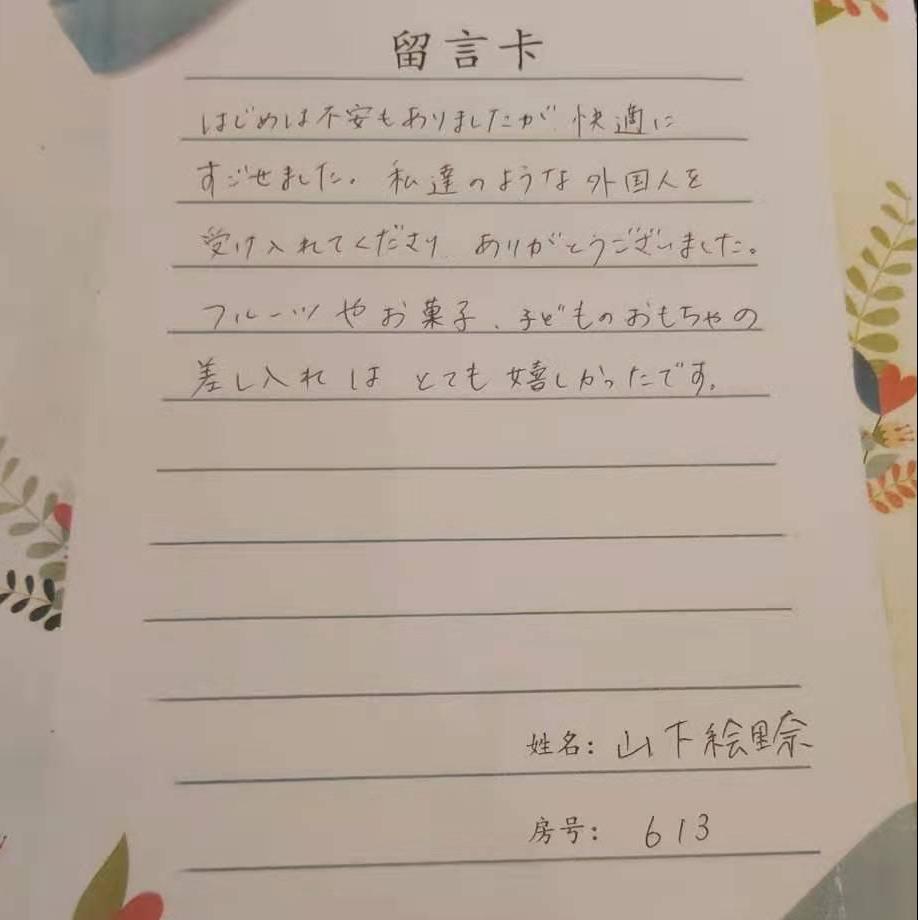 留言卡
はじめは不安もありましたが 快適に
すごせました。私達のような外国人を
受け入れてくださり ありがとうございました。
フルーツやお菓子、子どものおもちゃの
差し入れは とても嬉しかったです。
姓名：山下絵里奈
房号： 613